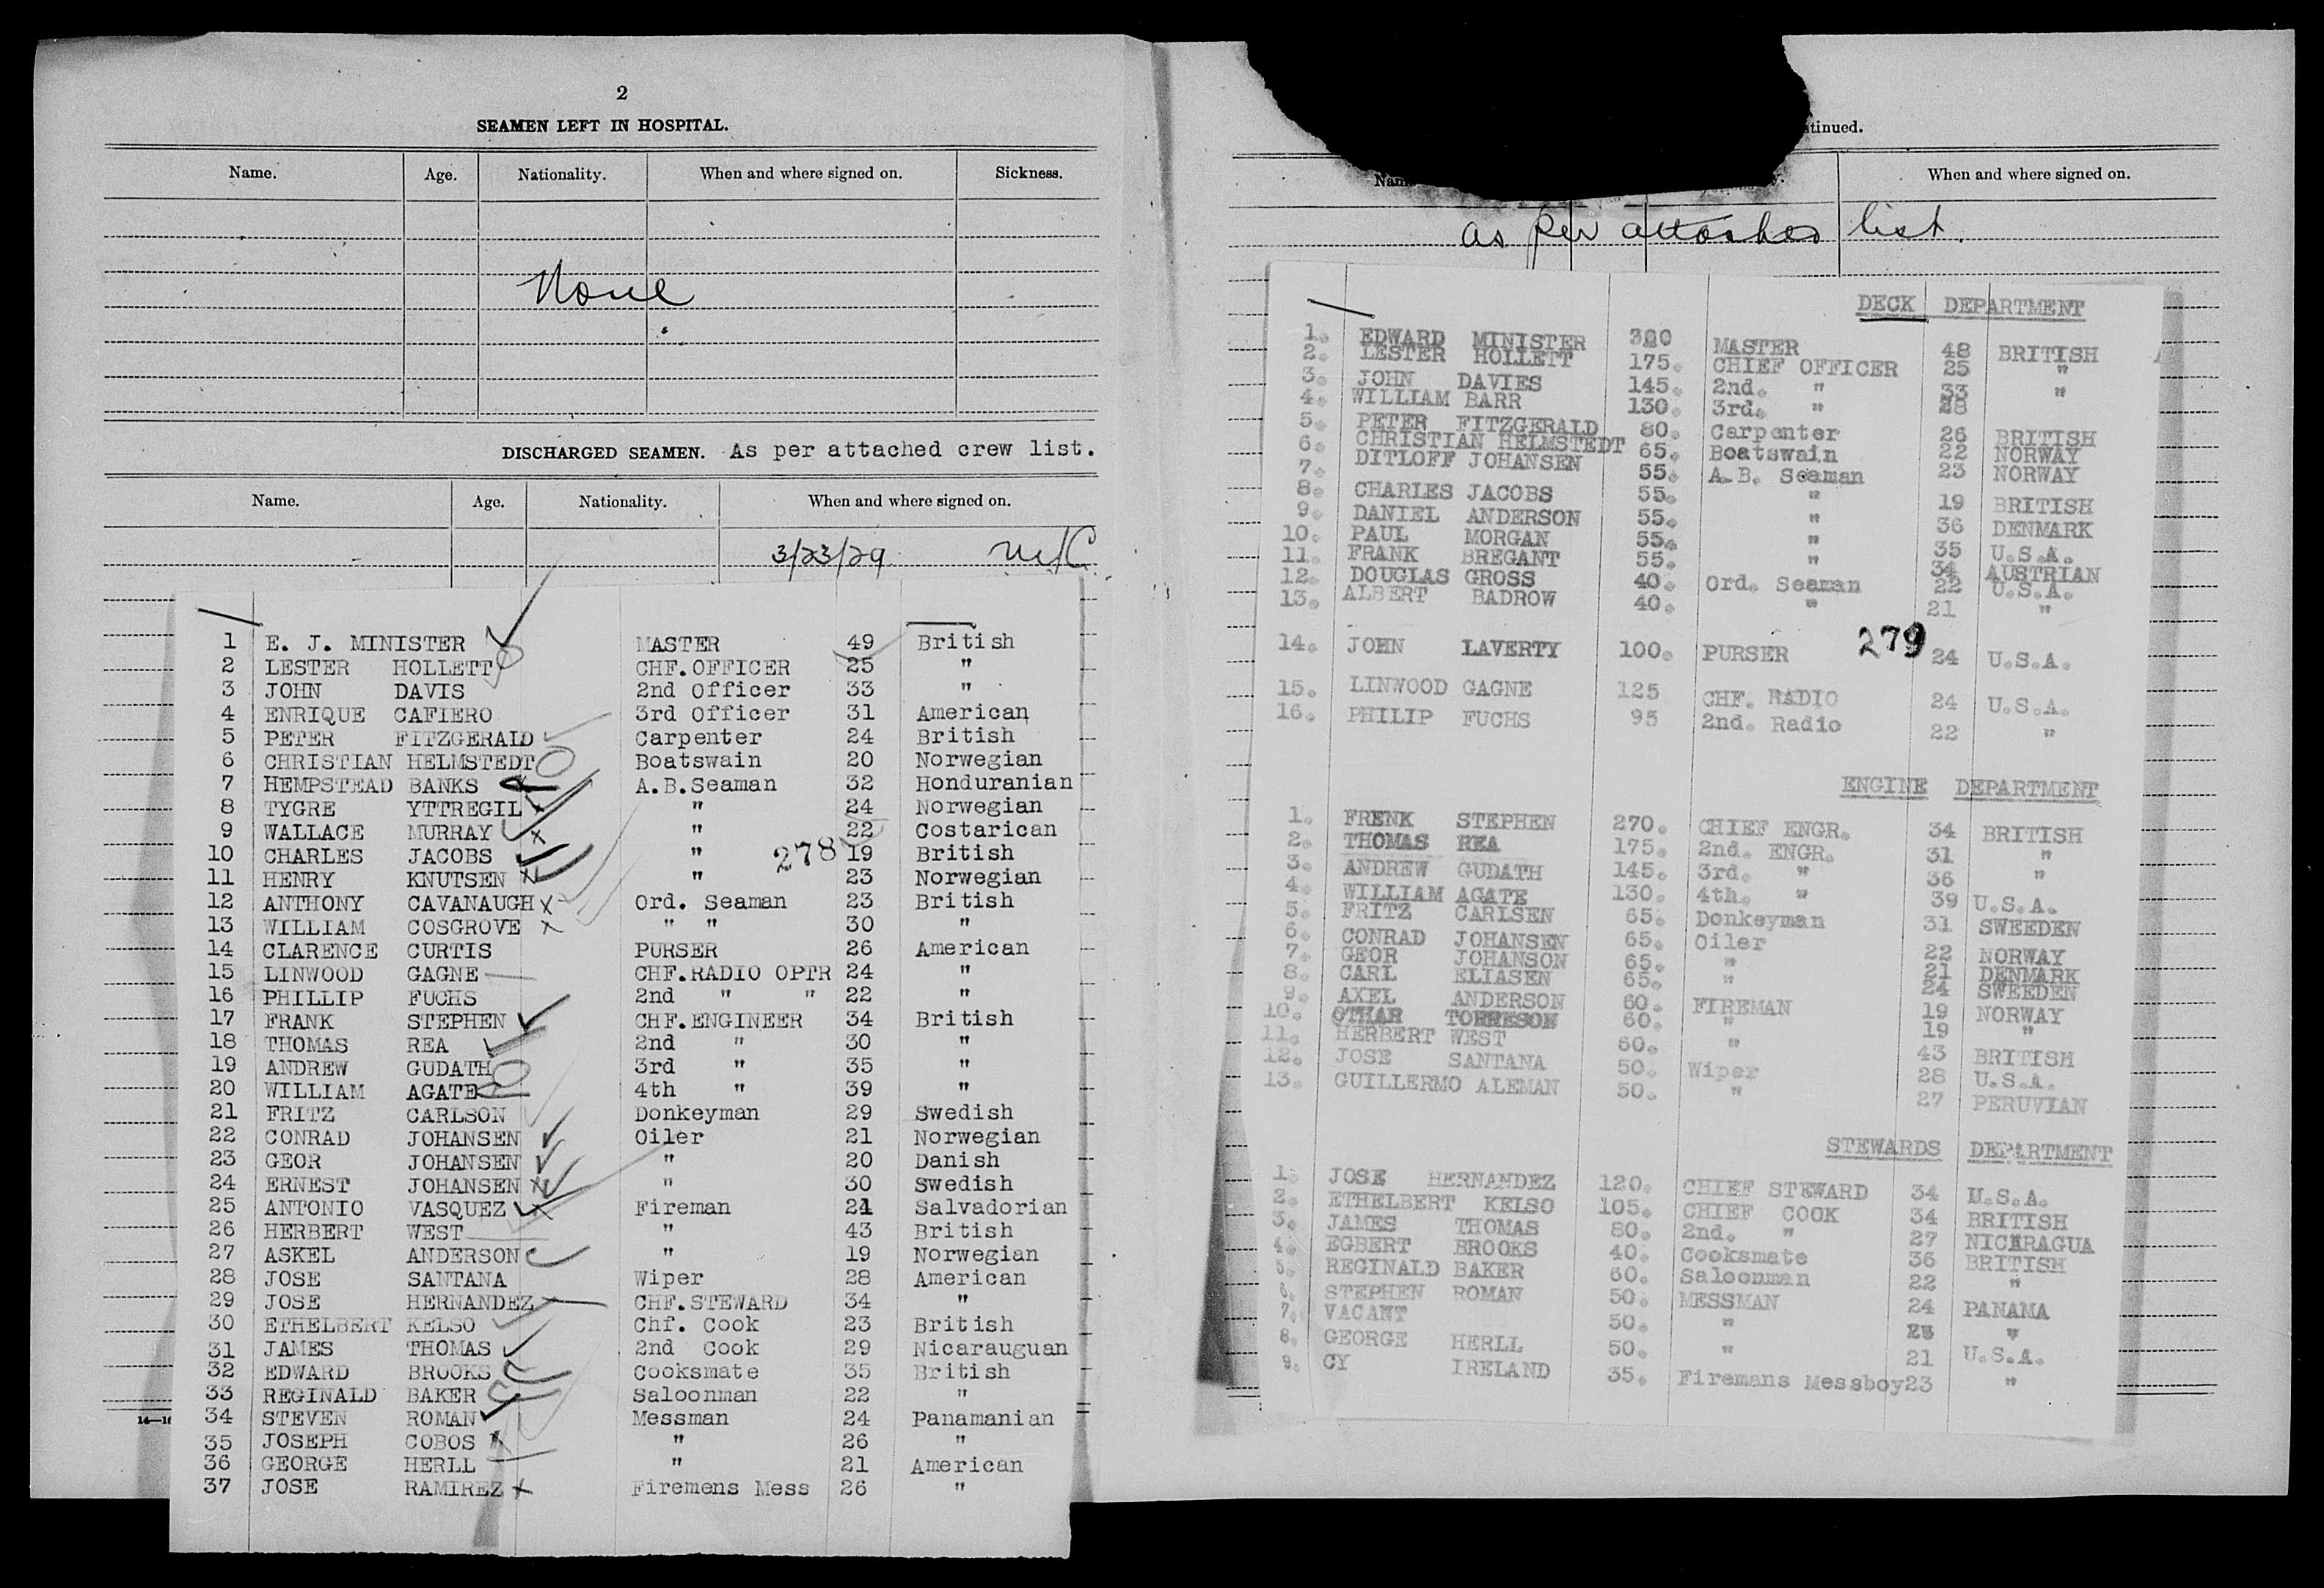 2
SEAMEN LEFT IN HOSPITAL.
Name. Age. Nationality. When and where signed on. Sickness.
None
DISCHARGED SEAMEN. As per attached crew list.
Name. Age. Nationality. When and where signed on.
3/23/29
1 E. J. MINISTER MASTER 49 British
2 LESTER HOLLETT CHF.OFFICER 25 "
3 JOHN DAVIS 2nd Officer 33 "
4 ENRIQUE CAFIERO 3rd Officer 31 American
5 PETER FITZGERALD Carpenter 24 British
6 CHRISTIAN HELMSTEDT Boatswain 20 Norwegian
7 HEMPSTEAD BANKS A.B.Seaman 32 Honduranian
8 TYGRE YTTREGIL " 24 Norwegian
9 WALLACE MURRAY " 22 Costarican
10 CHARLES JACOBS " 278 19 British
11 HENRY KNUTSEN " 23 Norwegian
12 ANTHONY CAVANAUGH Ord. Seaman 23 British
13 WILLIAM COSGROVE " " 30 "
14 CLARENCE CURTIS PURSER 26 American
15 LINWOOD GAGNE CHF.RADIO OPTR 24 "
16 PHILLIP FUCHS 2nd " " 22 "
17 FRANK STEPHEN CHF.ENGINEER 34 British
18 THOMAS REA 2nd " 30 "
19 ANDREW GUDATH 3rd " 35 "
20 WILLIAM AGATE 4th " 39 "
21 FRITZ CARLSON Donkeyman 29 Swedish
22 CONRAD JOHANSEN Oiler 21 Norwegian
23 GEOR JOHANSEN " 20 Danish
24 ERNEST JOHANSEN " 30 Swedish
25 ANTONIO VASQUEZ Fireman 21 Salvadorian
26 HERBERT WEST " 43 British
27 ASKEL ANDERSON " 19 Norwegian
28 JOSE SANTANA Wiper 28 American
29 JOSE HERNANDEZ CHF.STEWARD 34 "
30 ETHELBERT KELSO Chf. Cook 23 British
31 JAMES THOMAS 2nd Cook 29 Nicarauguan
32 EDWARD BROOKS Cooksmate 35 British
33 REGINALD BAKER Saloonman 22 "
34 STEVEN ROMAN Messman 24 Panamanian
35 JOSEPH COBOS " 26 "
36 GEORGE HERLL " 21 American
37 JOSE RAMIREZ Firemens Mess 26 "
tinued.
When and where signed on.
as per attached list.
DECK DEPARTMENT
1. EDWARD MINISTER 300 MASTER 48 BRITISH
2. LESTER HOLLETT 175. CHIEF OFFICER 25 "
3. JOHN DAVIES 145. 2nd. " 33 "
4. WILLIAM BARR 130. 3rd. " 28
5. PETER FITZGERALD 80. Carpenter 26 BRITISH
6. CHRISTIAN HELMSTEDT 65. Boatswain 22 NORWAY
7. DITLOFF JOHANSEN 55. A.B. Seaman 23 NORWAY
8. CHARLES JACOBS 55. " 19 BRITISH
9. DANIEL ANDERSON 55. " 36 DENMARK
10. PAUL MORGAN 55. " 35 U.S.A.
11. FRANK BREGANT 55. " 34 AUSTRIAN
12. DOUGLAS GROSS 40. Ord. Seaman 22 U.S.A.
13. ALBERT BADROW 40. " 21 "
279
14. JOHN LAVERTY 100. PURSER 24 U.S.A.
15. LINWOOD GAGNE 125 CHF. RADIO 24 U.S.A.
16. PHILIP FUCHS 95 2nd. Radio 22 "
ENGINE DEPARTMENT
1. FRENK STEPHEN 270. CHIEF ENGR. 34 BRITISH
2. THOMAS REA 175. 2nd. ENGR. 31 "
3. ANDREW GUDATH 145. 3rd. " 36 "
4. WILLIAM AGATE 130. 4th. " 39 U.S.A.
5. FRITZ CARLSEN 65. Donkeyman 31 SWEEDEN
6. CONRAD JOHANSEN 65. Oiler 22 NORWAY
7. GEOR JOHANSON 65. " 21 DENMARK
8. CARL ELIASEN 65. " 24 SWEEDEN
9. AXEL ANDERSON 60. FIREMAN 19 NORWAY
10. OTHAR TORRESON 60. " 19 "
11. HERBERT WEST 60. " 43 BRITISH
12. JOSE SANTANA 50. Wiper 28 U.S.A.
13. GUILLERMO ALEMAN 50. " 27 PERUVIAN
STEWARDS DEPARTMENT
1. JOSE HERNANDEZ 120. CHIEF STEWARD 34 U.S.A.
2. ETHELBERT KELSO 105. CHIEF COOK 34 BRITISH
3. JAMES THOMAS 80. 2nd. " 27 NICARAGUA
4. EGBERT BROOKS 40. Cooksmate 36 BRITISH
5. REGINALD BAKER 60. Saloonman 22 "
6. STEPHEN ROMAN 50. MESSMAN 24 PANAMA
7. VACANT 50. " "
8. GEORGE HERLL 50. " 21 U.S.A.
9. CY IRELAND 35. Firemans Messboy 23 "